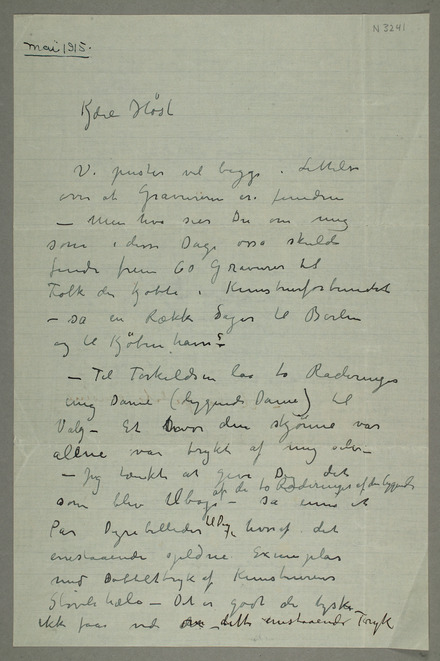 N 3241
Mai 1915.
Kjære Høst
Vi puster vel begge i Lettelse
over at Gravuren er funden
— Men hva sier Du om mig
som i disse Dage osså skulde
finde frem 60 Gravurer til
Folk der kjøbte i Kunstnerforbundet
— så en Række Sager til Berlin
og til Kjøbenhavn?
— Til Torkildsen laa to Raderinger
ung Dame (liggende Dame) til
Valg — Et den skjønne var
allene var trykt af mig selv —
— Jeg tænkte at give Dig det
som blev tilbage af de to Raderinger af den liggende
— så ennu et
Par Dyrebilleder til Dig, hvoraf det
enestaaende sjeldne Exemplar
med Dobbelttryk af Kunstnerens
Støvlehæle — Det er godt de tyske
ikke faar ved dette enestaaende Tryk